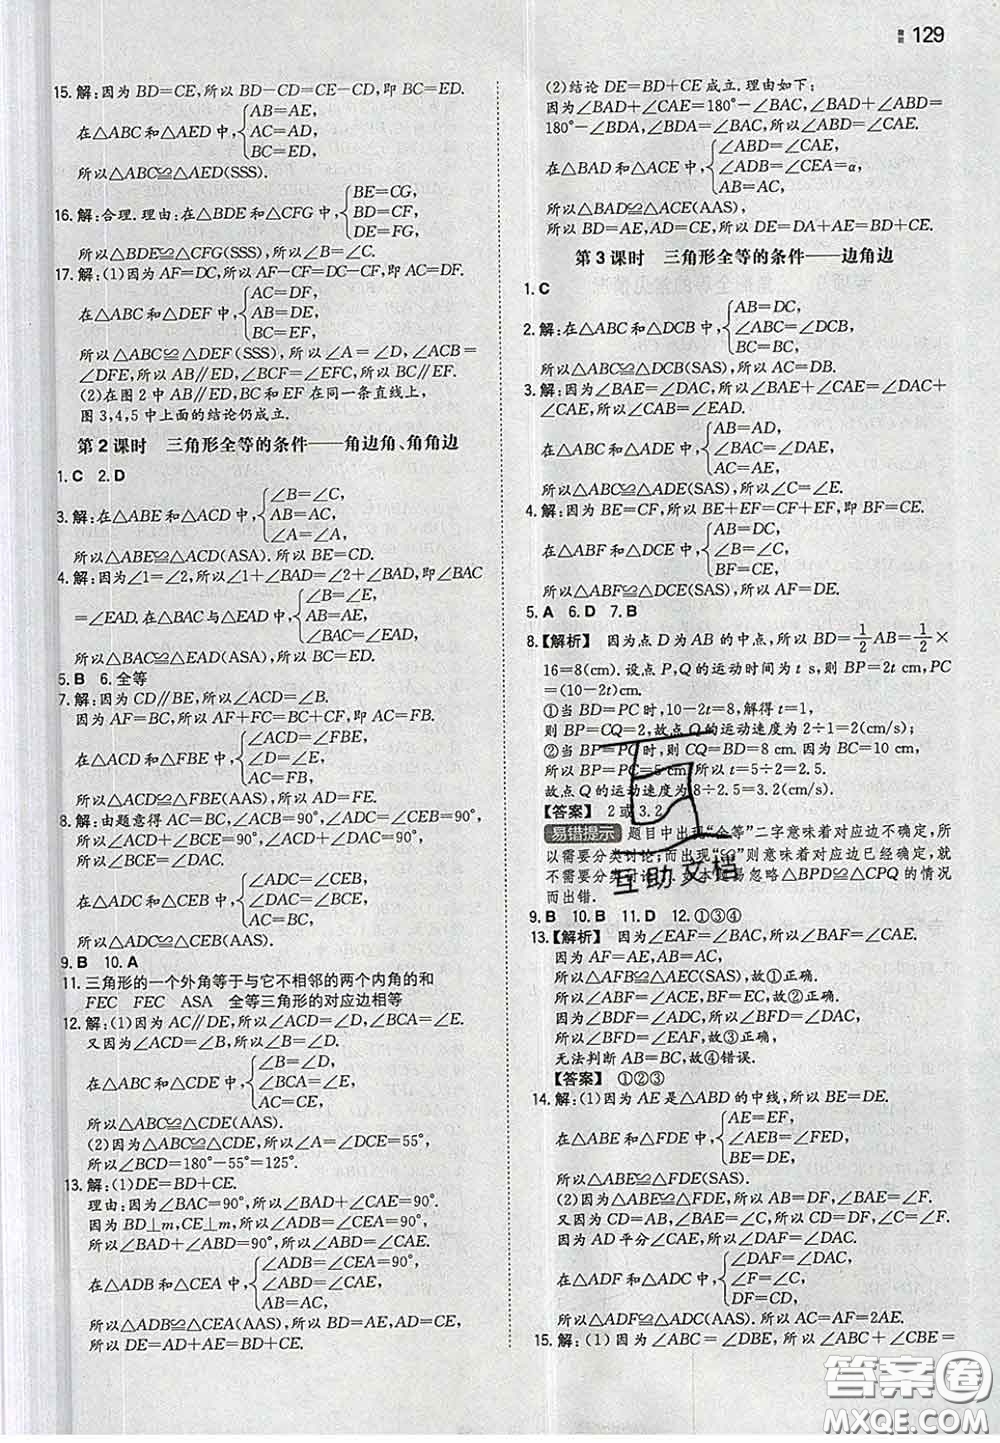 129
15. 解:因为 BD=CE,所以 BD-CD=CE-CD,即 BC=ED.
在△ABC 和△AED 中,{AB=AE,
AC=AD,
BC=ED,
所以△ABC≌△AED(SSS).
16. 解:合理.理由:在△BDE 和△CFG 中,{BE=CG,
BD=CF,
DE=FG,
所以△BDE≌△CFG(SSS),所以∠B=∠C.
17. 解:(1)因为 AF=DC,所以 AF-CF=DC-CF,即 AC=DF.
在△ABC 和△DEF 中,{AC=DF,
AB=DE,
BC=EF,
所以△ABC≌△DEF(SSS),所以∠A=∠D,∠ACB=
∠DFE,所以 AB∥ED,∠BCF=∠EFC,所以 BC∥EF.
(2)在图 2 中 AB∥ED,BC 和 EF 在同一条直线上,
图 3,4,5 中上面的结论仍成立.
第 2 课时 三角形全等的条件——角边角、角角边
1. C 2. D
3. 解:在△ABE 和△ACD 中,{∠B=∠C,
AB=AC,
∠A=∠A,
所以△ABE≌△ACD(ASA).所以 BE=CD.
4. 解:因为∠1=∠2,所以∠1+∠BAD=∠2+∠BAD,即∠BAC
=∠EAD.在△BAC 与△EAD 中,{∠B=∠E,
AB=AE,
∠BAC=∠EAD,
所以△BAC≌△EAD(ASA),所以 BC=ED.
5. B 6. 全等
7. 解:因为 CD∥BE,所以∠ACD=∠B.
因为 AF=BC,所以 AF+FC=BC+CF,所以 AC=FB.
在△ACD 和△FBE 中,{∠ACD=∠FBE,
∠D=∠E,
AC=FB,
所以△ACD≌△FBE(AAS),所以 AD=FE.
8. 解:由题意得 AC=BC,∠ACB=90°,∠ADC=∠CEB=90°,
所以∠ACD+∠BCE=90°,∠ACD+∠DAC=90°,
所以∠BCE=∠DAC.
在△ADC 和△CEB 中,{∠ADC=∠CEB,
∠DAC=∠BCE,
AC=BC,
所以△ADC≌△CEB(AAS).
9. B 10. A
11. 三角形的一个外角等于与它不相邻的两个内角的和
FEC FEC ASA 全等三角形的对应边相等
12. 解:(1)因为 AC∥DE,所以∠ACD=∠D,∠BCA=∠E.
又因为∠ACD=∠B,所以∠B=∠D.
在△ABC 和△CDE 中,{∠B=∠D,
∠BCA=∠E,
AC=CE,
所以△ABC≌△CDE(AAS).
(2)因为△ABC≌△CDE,所以∠A=∠DCE=55°,
所以∠BCD=180°-55°=125°.
13. 解:(1)DE=BD+CE.
理由:因为∠BAC=90°,所以∠BAD+∠CAE=90°.
因为 BD⊥m,CE⊥m,所以∠ADB=∠CEA=90°,
所以∠BAD+∠ABD=90°,所以∠ABD=∠CAE.
在△ADB 和△CEA 中,{∠ADB=∠CEA,
∠ABD=∠CAE,
AB=AC,
所以△ADB≌△CEA(AAS),所以 BD=AE,AD=CE,
所以 DE=AD+AE=BD+CE.
(2)结论 DE=BD+CE成立.理由如下:
因为∠BAD+∠CAE=180°-∠BAC,∠BAD+∠ABD=
180°-∠BDA,∠BDA=∠BAC,所以∠ABD=∠CAE.
在△BAD 和△ACE 中,{∠ABD=∠CAE,
∠ADB=∠CEA=α,
AB=AC,
所以△BAD≌△ACE(AAS),
所以 BD=AE,AD=CE,所以 DE=DA+AE=BD+CE.
第 3 课时 三角形全等的条件——边角边
1. C
2. 解:在△ABC 和△DCB 中,{AB=DC,
∠ABC=∠DCB,
BC=BC,
所以△ABC≌△DCB(SAS),所以 AC=DB.
3. 解:因为∠BAE=∠DAC,所以∠BAE+∠CAE=∠DAC+
∠CAE,所以∠BAC=∠DAE.
在△ABC 和△ADE 中,{AB=AD,
∠BAC=∠DAE,
AC=AE,
所以△ABC≌△ADE(SAS),所以∠C=∠E.
4. 解:因为 BE=CF,所以 BE+EF=CF+EF,即 BF=CE.
在△ABF 和△DCE 中,{AB=DC,
∠B=∠C,
BF=CE,
所以△ABF≌△DCE(SAS),所以 AF=DE.
5. A 6. D 7. B
8.【解析】 因为点 D 为 AB 的中点,所以 BD=1/2AB=1/2×
16=8(cm).设点 P,Q 的运动时间为 t s,则 BP=2t cm,PC
=(10-2t)cm.
①当 BD=PC 时,10-2t=8,解得 t=1,
则 BP=CQ=2,故点 Q 的运动速度为 2÷1=2(cm/s);
②当 BP=PC 时,则 CQ=BD=8 cm.因为 BC=10 cm,
所以 BP=PC=5 cm,所以 t=5÷2=2.5.
故点 Q 的运动速度为 8÷2.5=3.2(cm/s).
【答案】 2 或 3.2
易错提示 题目中出现“全等”二字意味着对应边不确定,所
以需要分类讨论;而出现“≌”则意味着对应边已经确定,就
不需要分类讨论了.本题易忽略△BPD≌△CPQ 的情况
而出错.
9. B 10. B 11. D 12. ①③④
13.【解析】 因为∠EAF=∠BAC,所以∠BAF=∠CAE.
因为 AF=AE,AB=AC,
所以△FAB≌△EAC(SAS),故①正确.
所以∠ABF=∠ACE,BF=EC,故②正确.
所以∠ABF=∠ACE,所以∠BFD=∠DAC,
所以∠BFD=∠EAF,故③正确,
无法判断 AB=BC,故④错误.
【答案】 ①②③
14. 解:(1)因为 AE 是△ABD 的中线,所以 BE=DE.
在△ABE 和△FDE 中,{AE=EF,
∠AEB=∠FED,
BE=DE,
所以△ABE≌△FDE(SAS).
(2)因为△ABE≌△FDE,所以 AB=DF,∠BAE=∠F.
又因为 CD=AB,∠BAE=∠C,所以 CD=DF,∠C=∠F.
因为 AD 平分∠CAE,所以∠DAF=∠DAC.
在△ADF 和△ADC 中,{∠DAF=∠DAC,
∠F=∠C,
DF=CD,
所以△ADF≌△ADC(AAS),所以 AC=AF=2AE.
15. 解:(1)因为∠ABC=∠DBE,所以∠ABC+∠CBE=
互助文档
答案圈
MXQE.COM